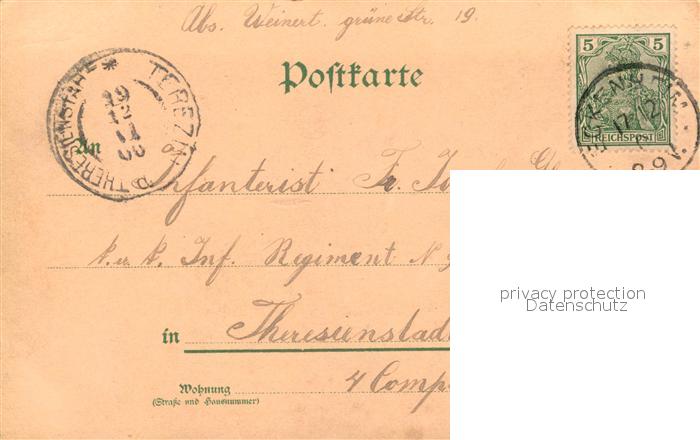 Abs. Weinert. grüne Str. 19.
Postkarte
5 5
REICHSPOST
TEREZIN
THERESIENSTADT
19
12
11
00
17 12
8-9 V.
An
Infanterist Fr.
k. u. k. Inf. Regiment N
in Theresienstadt
Wohnung
(Straße und Hausnummer)
4 Comp
privacy protection
Datenschutz